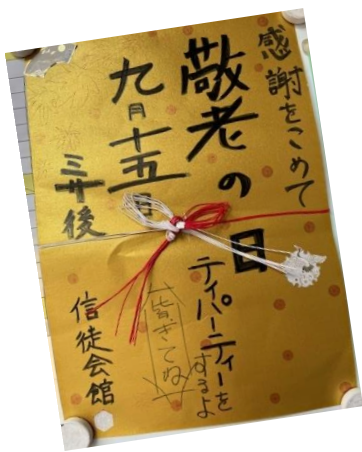 感謝をこめて
敬老の日
九月十五日
ミサ後
ティパーティーを
するよ
皆きてね
信徒会館